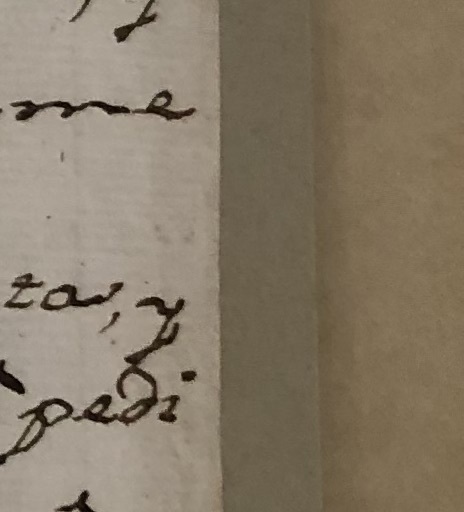 y
me
ta, y
pedi